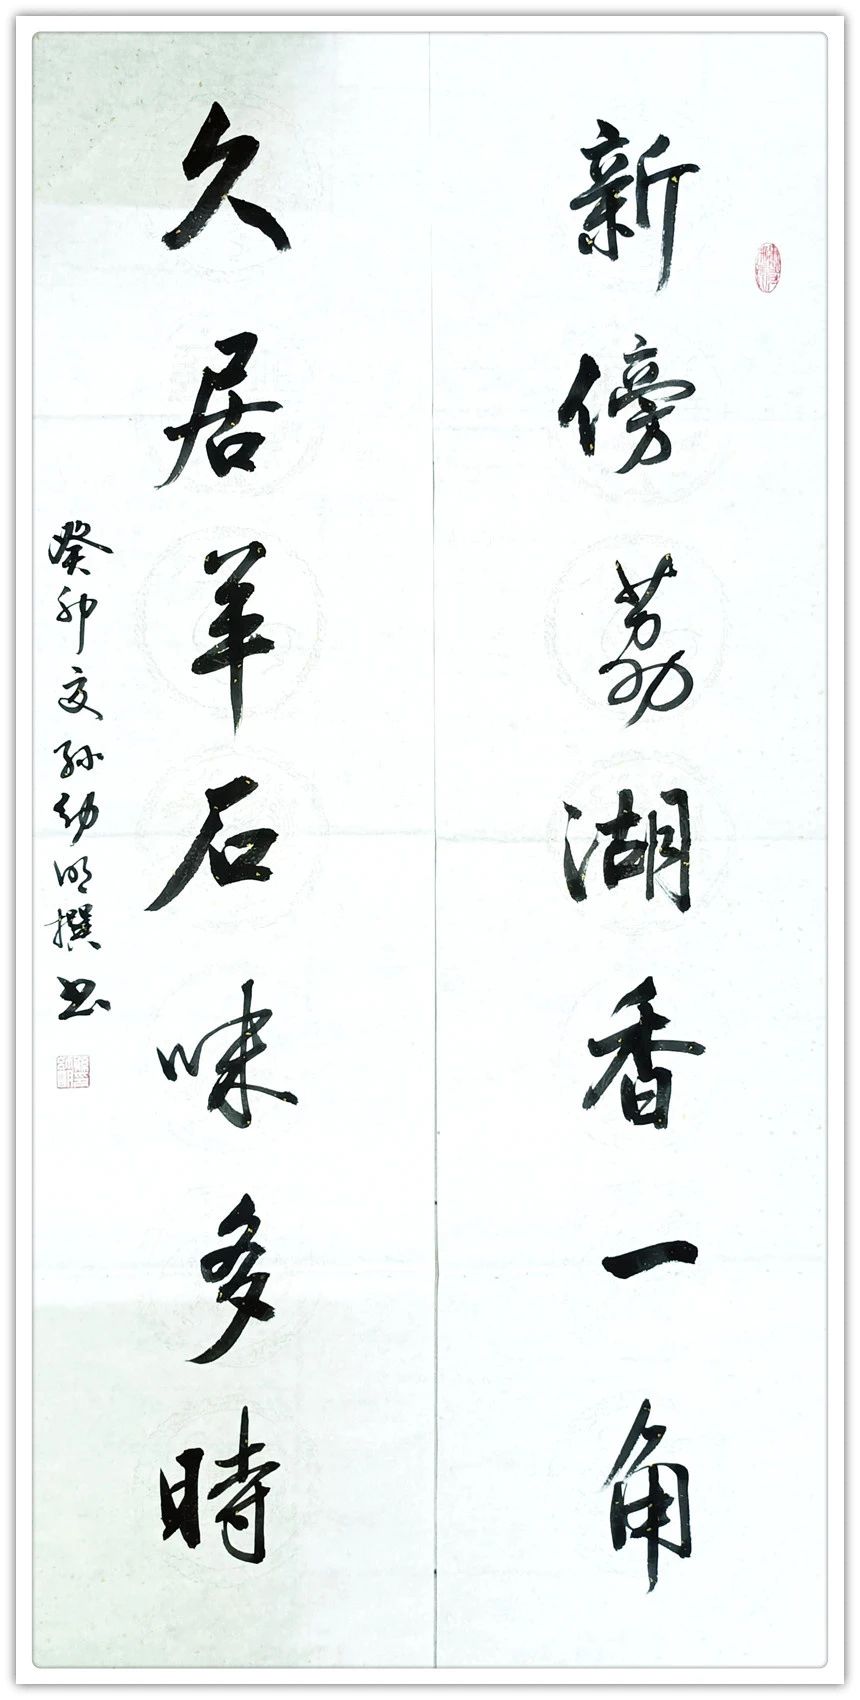 新傍荔湖香一角
久居羊石味多時
癸卯夏孫幼明撰书